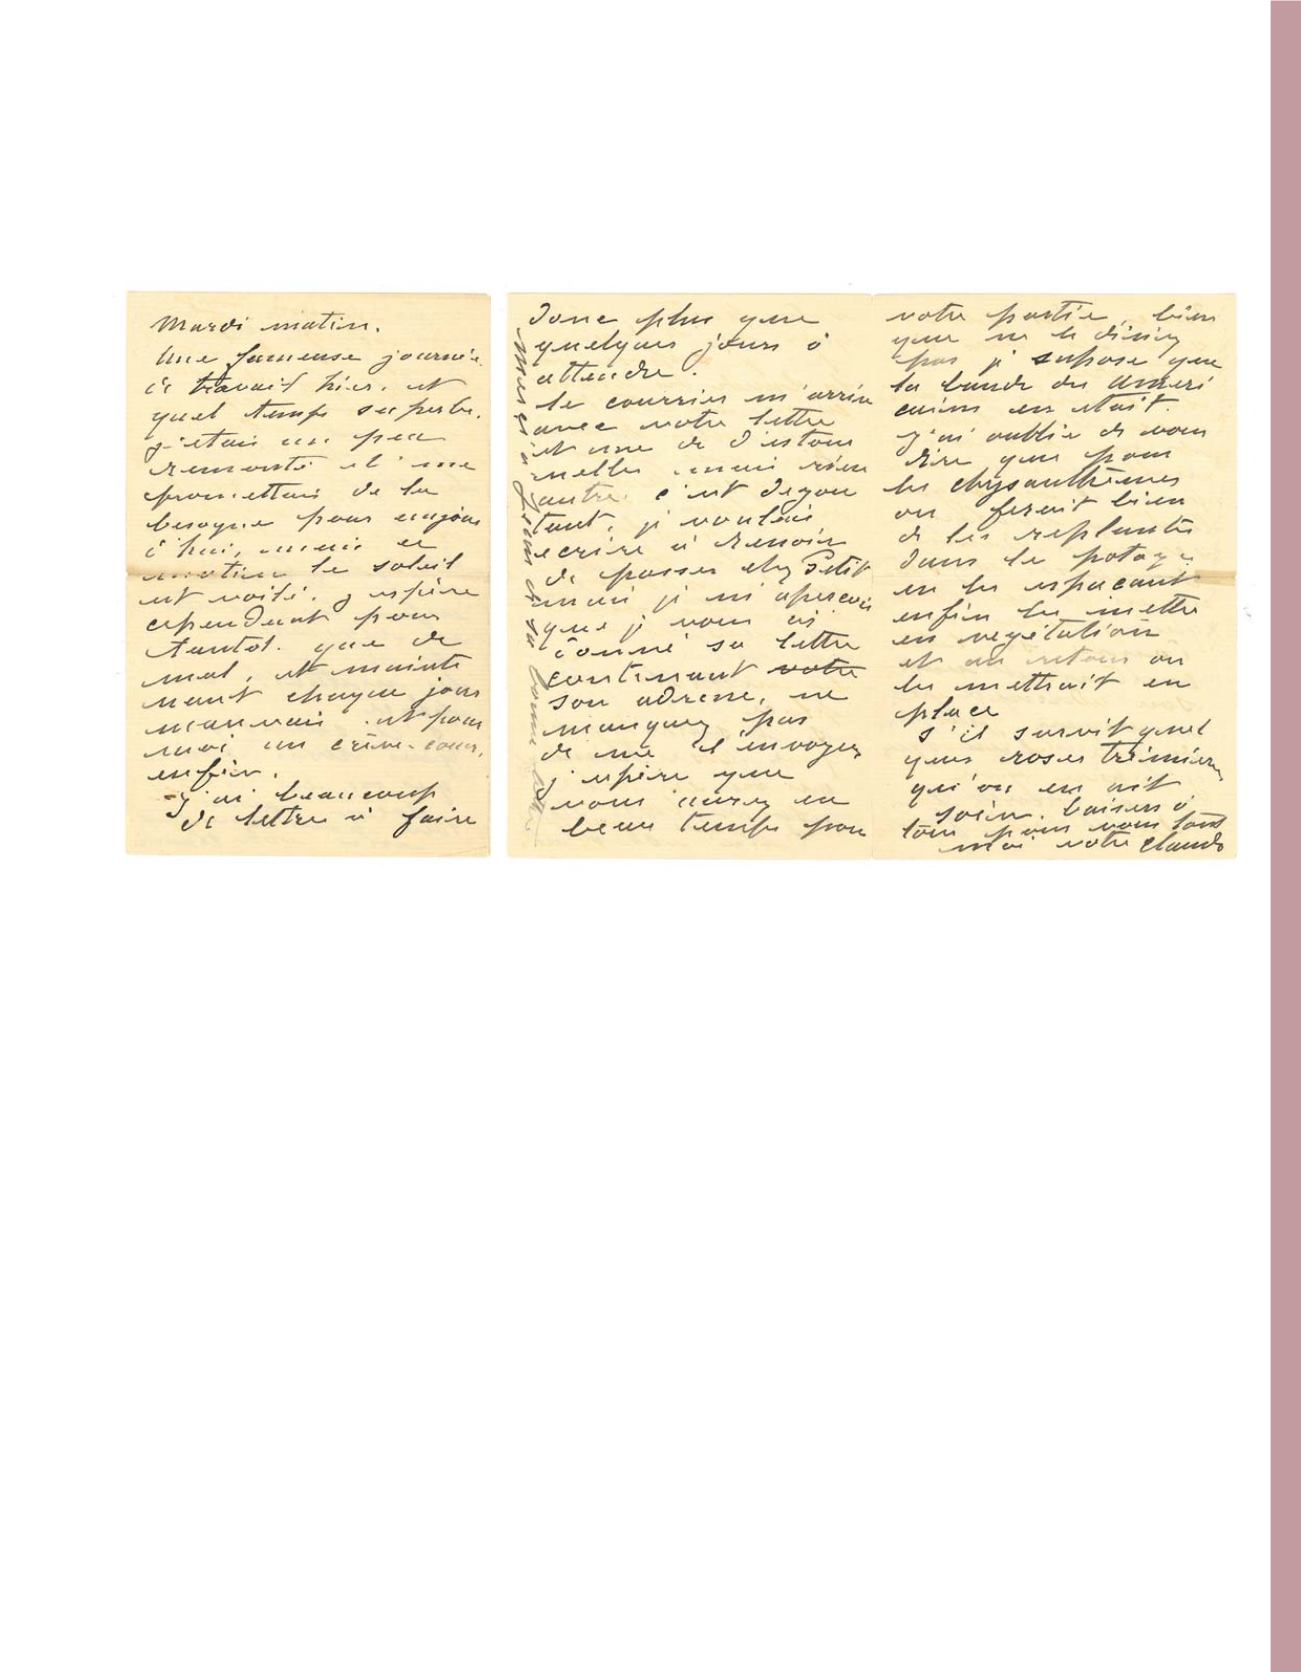 Mardi matin.
Une fameuse journée
de travail hier, et
quel temps superbe.
j'etais un peu
remonté et me
promettais de la
besogne pour aujour
d'hui, mais ce
matin le soleil
est voilé. j'espère
cependant pour
tantot. que de
mal, et mainte
nant chaque jour
mauvais est pour
moi un crève-cœur,
enfin.
- J'ai beaucoup
de lettre à faire
donc plus que
quelques jours à
attendre.
le courrier m'arrive
avec votre lettre
et une de d'estour
nelles mais rien
autre. c'est degou
tant, je voulais
ecrire à Renoir
de passer chez Petit
mais je m'apercois
que je vous ai
donné sa lettre
contenant votre
son adresse, ne
manquez pas
de me l'envoyer
j'espère que
vous aurez eu
beau temps pour
Merci à Jean de sa bonne lettre
votre partie, bien
que ne le disiez
pas je supose que
la bande des ameri
cains en etait.
J'ai oublié de vous
dire que pour
les chrysanthèmes
on ferait bien
de les replanter
dans le potager
en les espacant
enfin les mettre
en vegétation
et au retour on
les mettrait en
place
s'il survit quel
ques roses trémières
qu'on en ait
soin. baisers à
tous pour vous tout
moi votre Claude